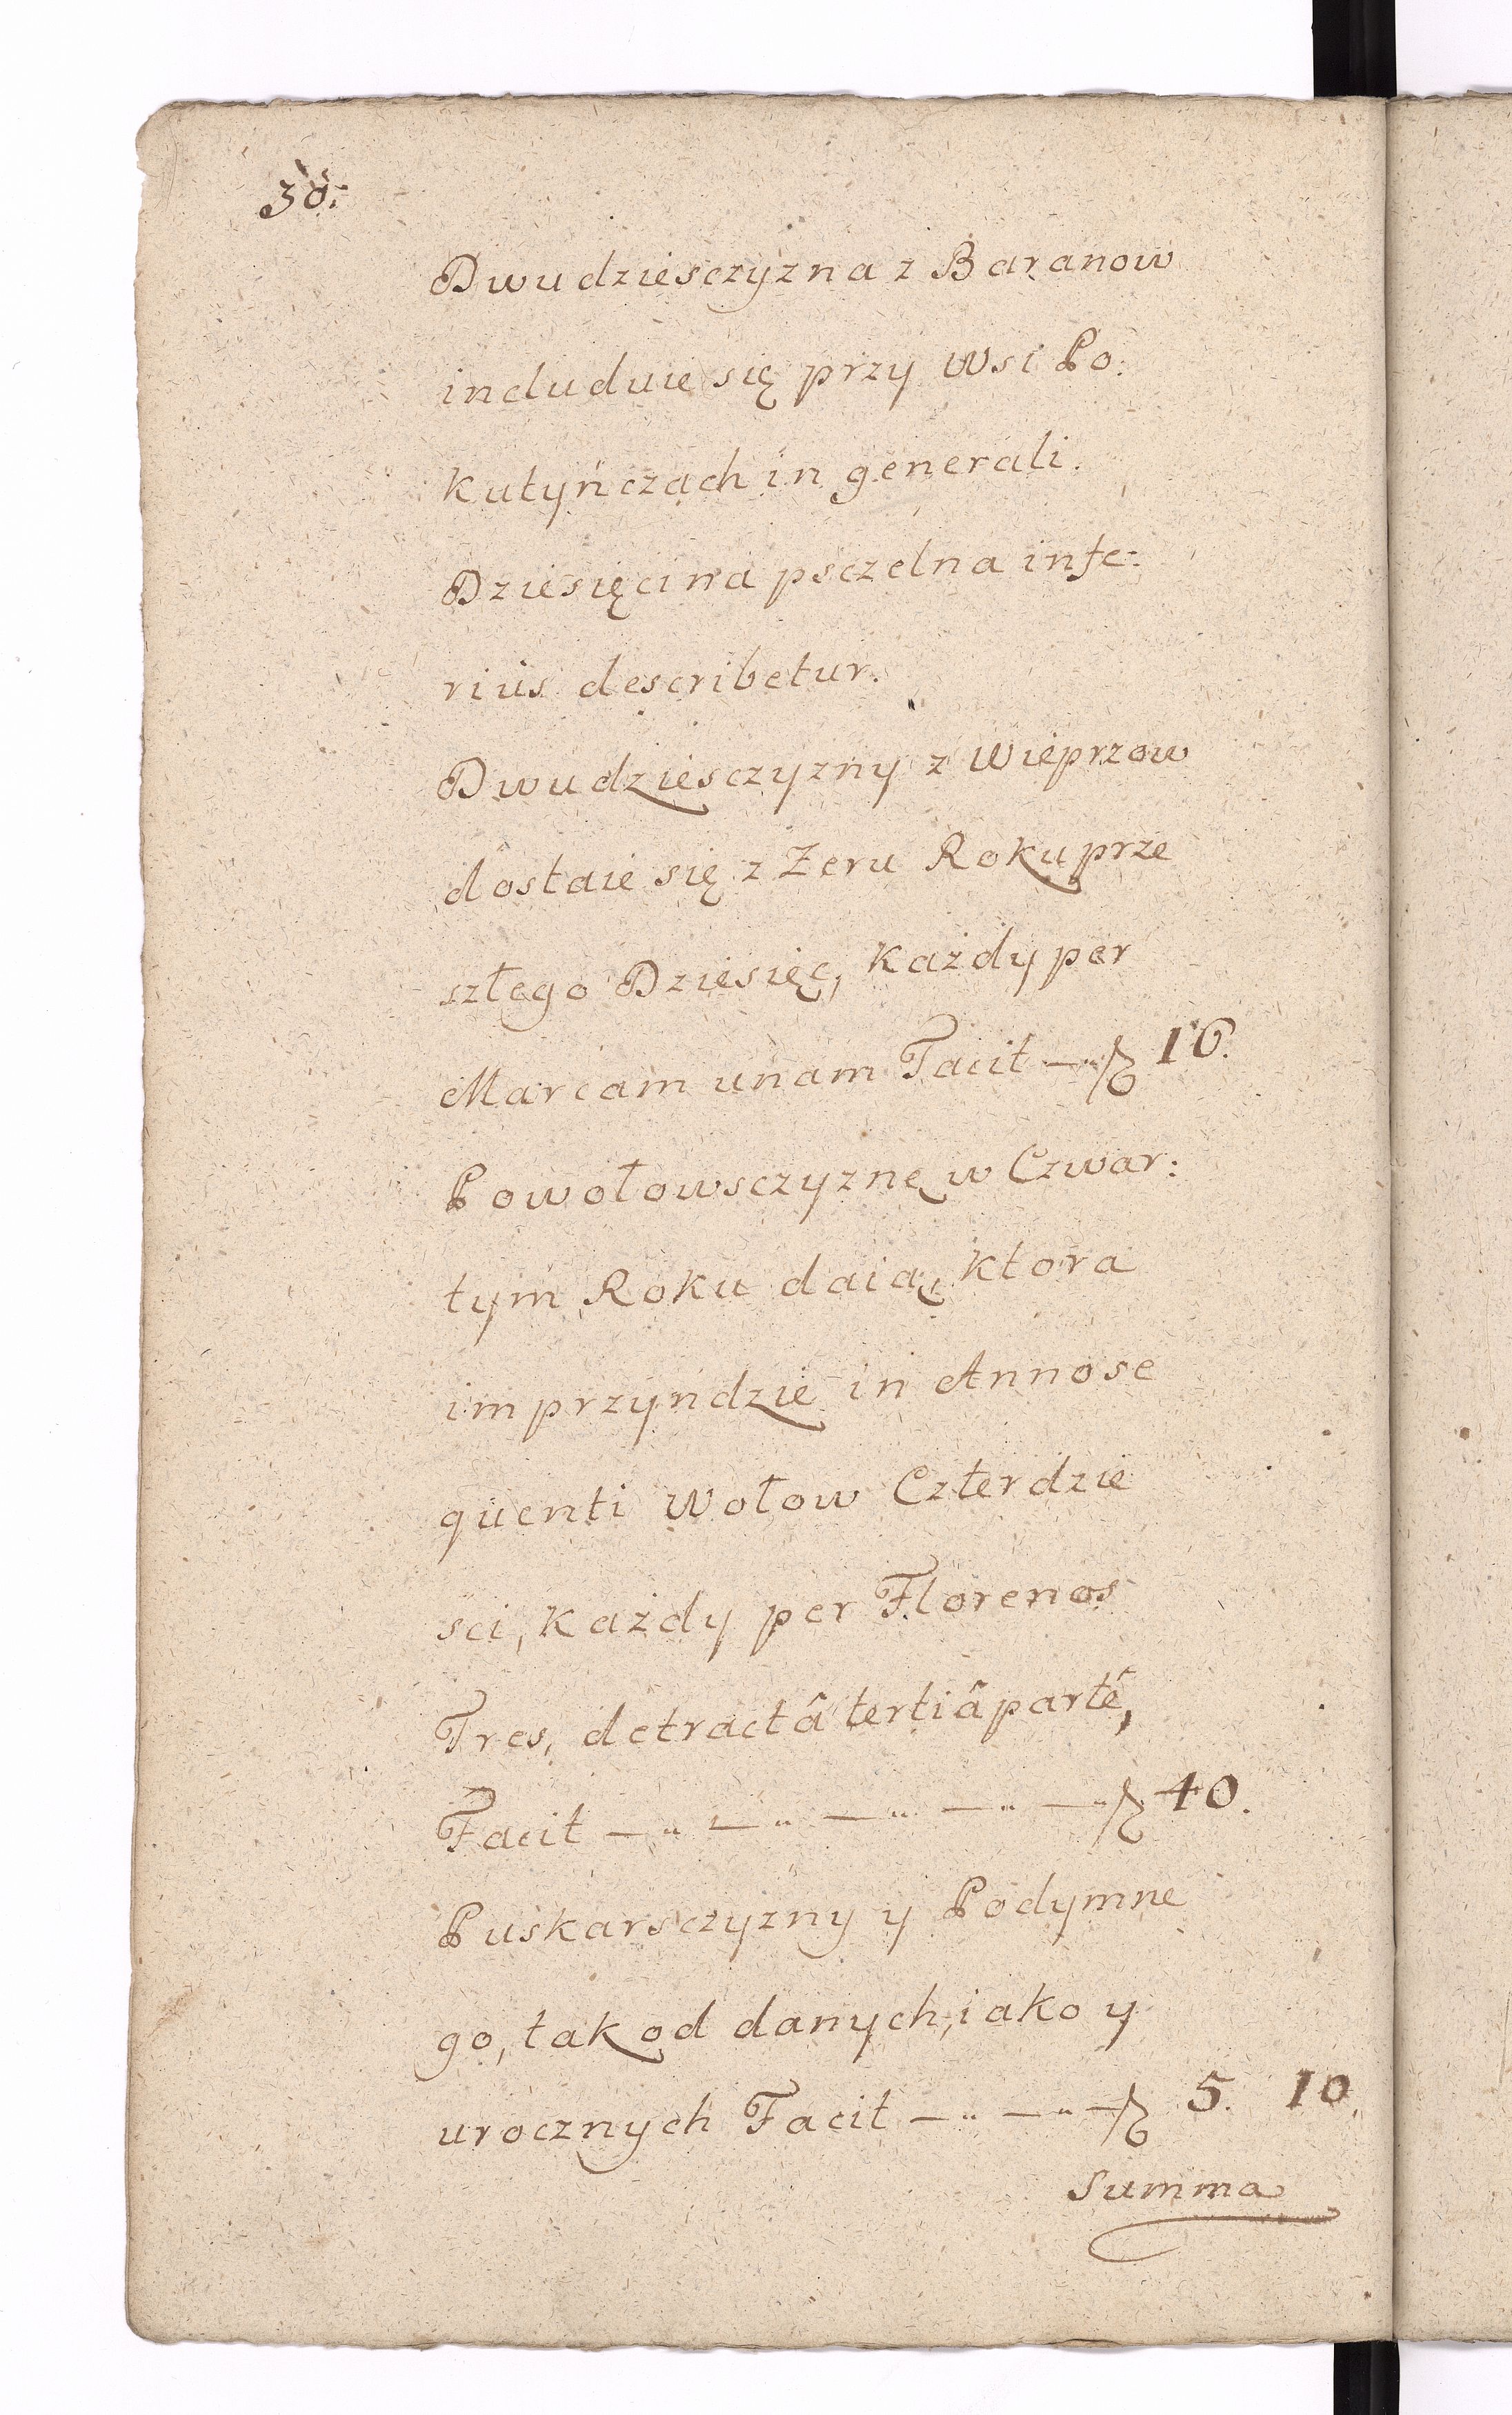 38.
Dwudziesczyzna z Baranow
includuie się przy Wsi Po:
kutyńczach in generali.
Dziesięcina psczelna infe:
rius describetur.
Dwudziesczyzny z Wieprzow
dostaie się z Zeru Roku prze
szłego Dziesięc, każdy per
Marcam unam Facit — 16.
Powołowsczyznę w Czwar:
tym Roku daią, ktora
im przyndzie in Anno se
quenti Wołow Czterdzie
sci, każdy per Florenos
Tres, detractâ tertiâ partê,
Facit — „ — „ — „ — „ — „ 40.
Puskarsczyzny y Podymne
go, tak od danych, iako y
urocznych Facit — „ — „ — 5. 10.
Summa